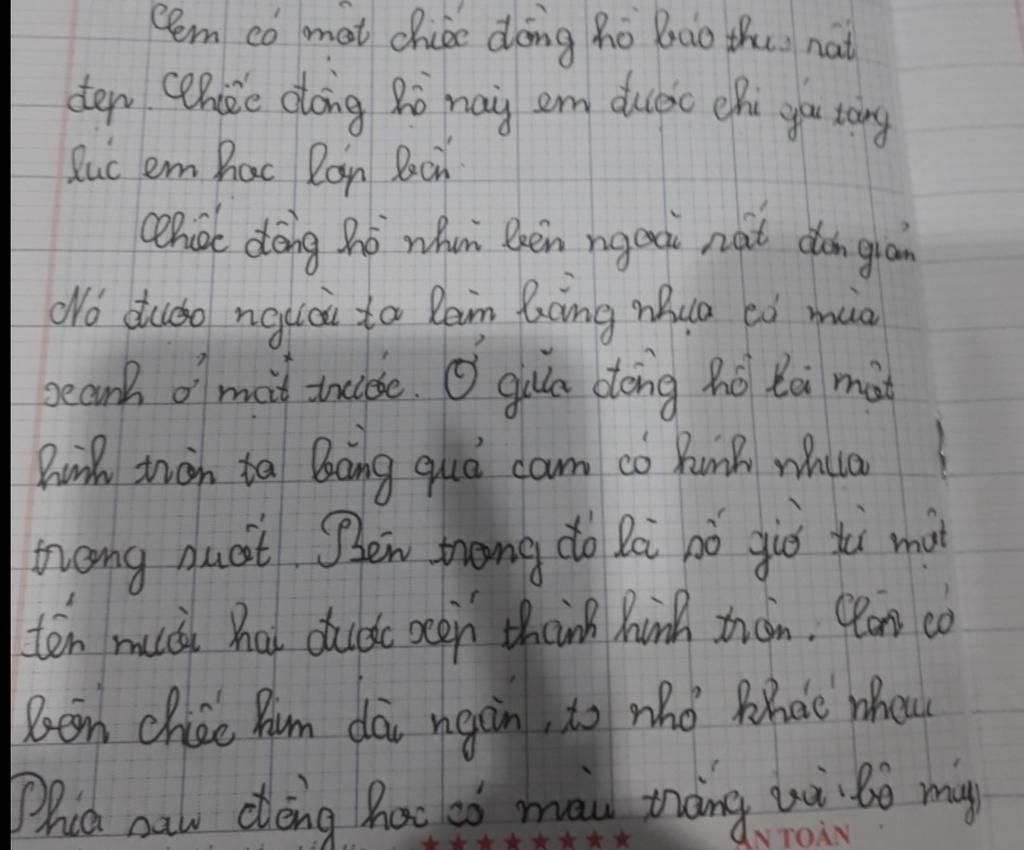 Em có một chiếc đồng hồ báo thức rất
đẹp. Chiếc đồng hồ này em được chị gái tặng
lúc em học lớp bốn.
Chiếc đồng hồ nhìn bên ngoài rất đơn giản
Nó được người ta làm bằng nhựa có mùa
xeanh ở mặt trước. Ở giữa đồng hồ là một
hình tròn to bằng quả cam có hình nhựa
trong suốt. Bên trong đó là số giờ từ một
tến mười hai được xếp thành hình tròn. Còn có
bốn chiếc kim dài ngắn, to nhỏ khác nhau
Phía sau đồng học có màu trắng và bộ máy
AN TOÀN